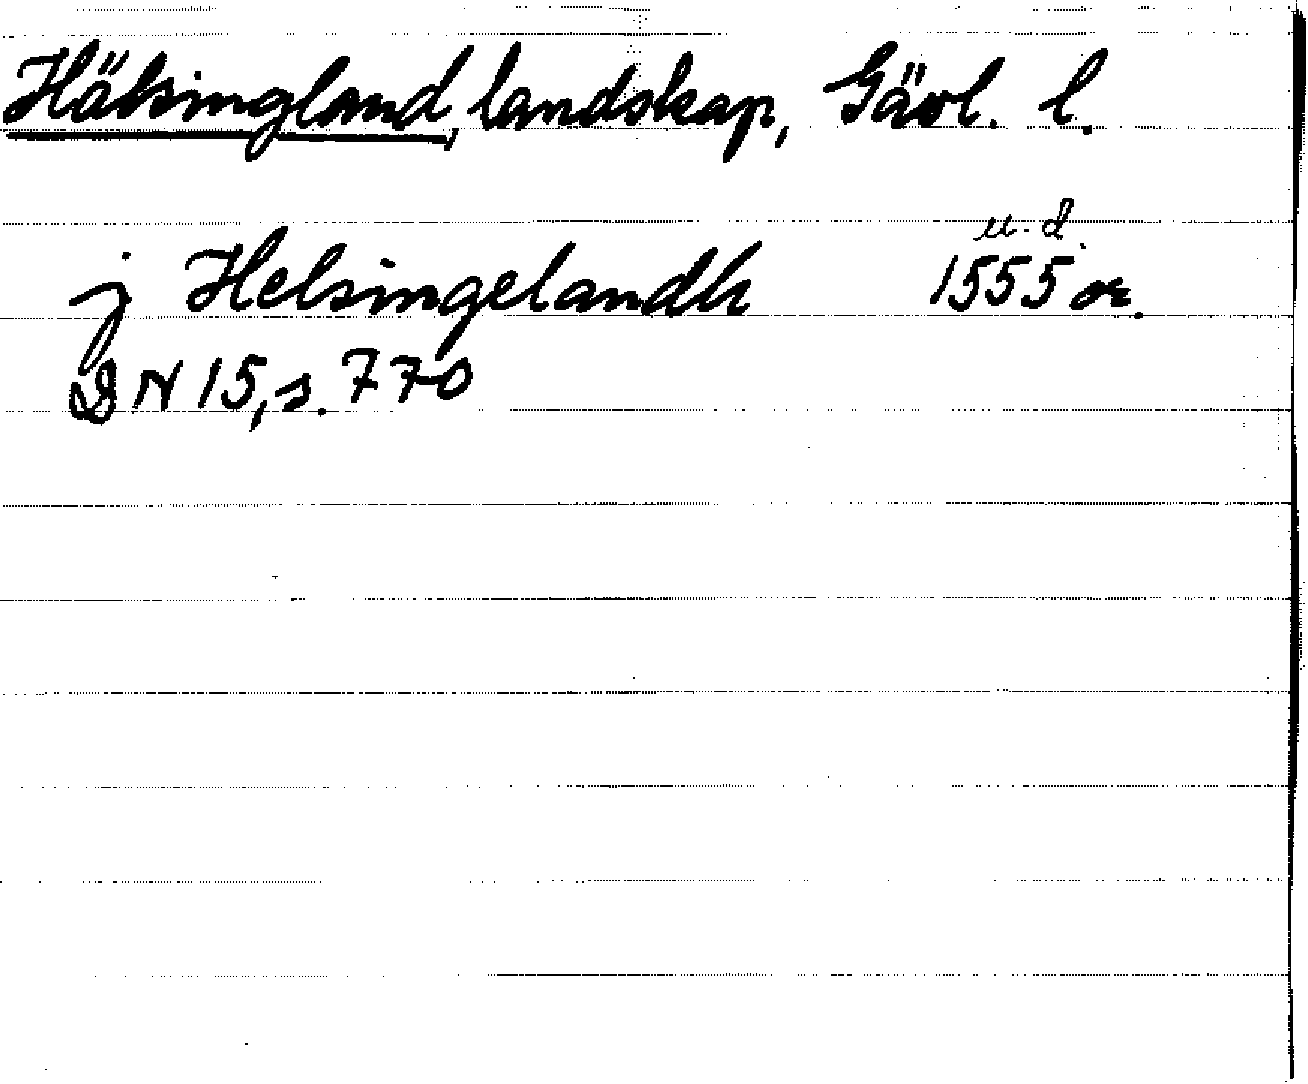 Hälsingland, landskap, Gävl. l.
u. d.
j Helsingelandh 1555 or.
DN 15, s. 770